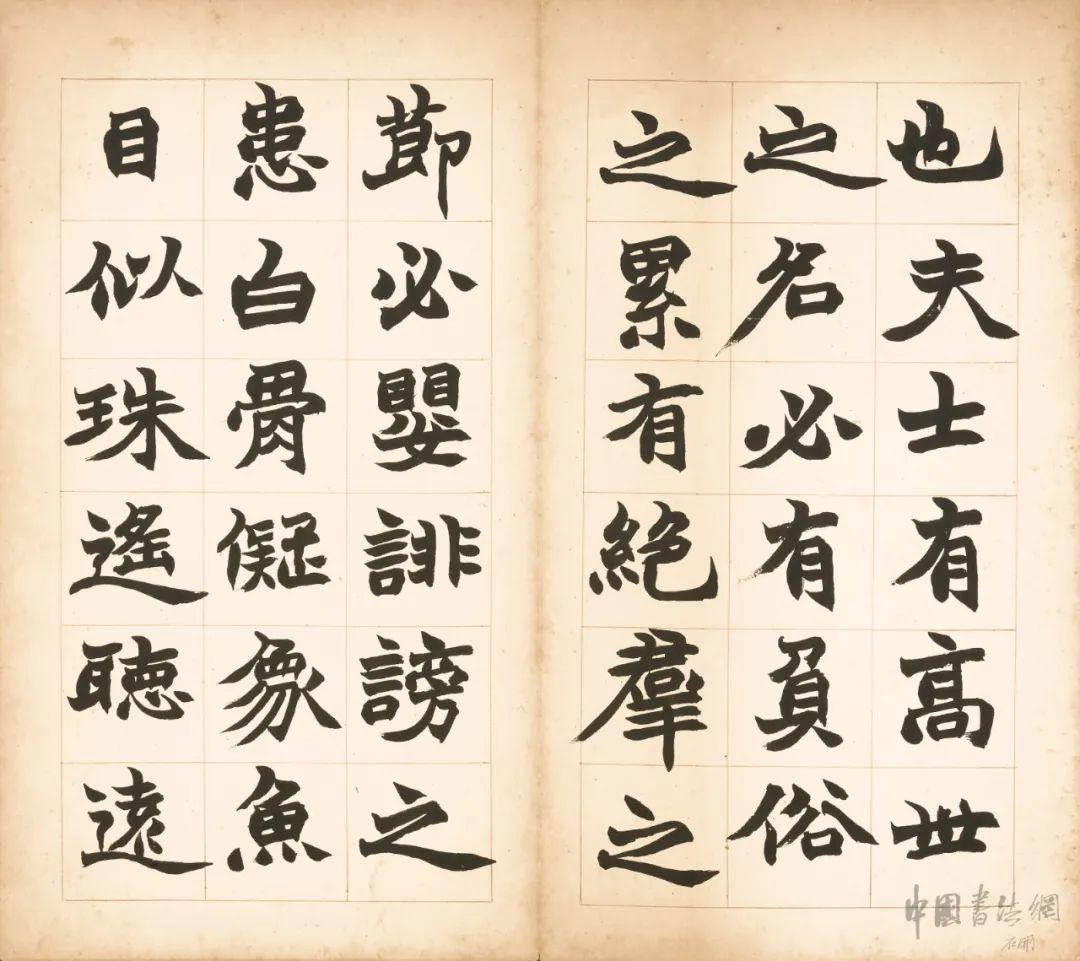 也夫士有高世
之名必有負俗
之累有絕羣之
節必嬰誹謗之
患白骨儗象魚
目似珠遙聽遠
中國書法網